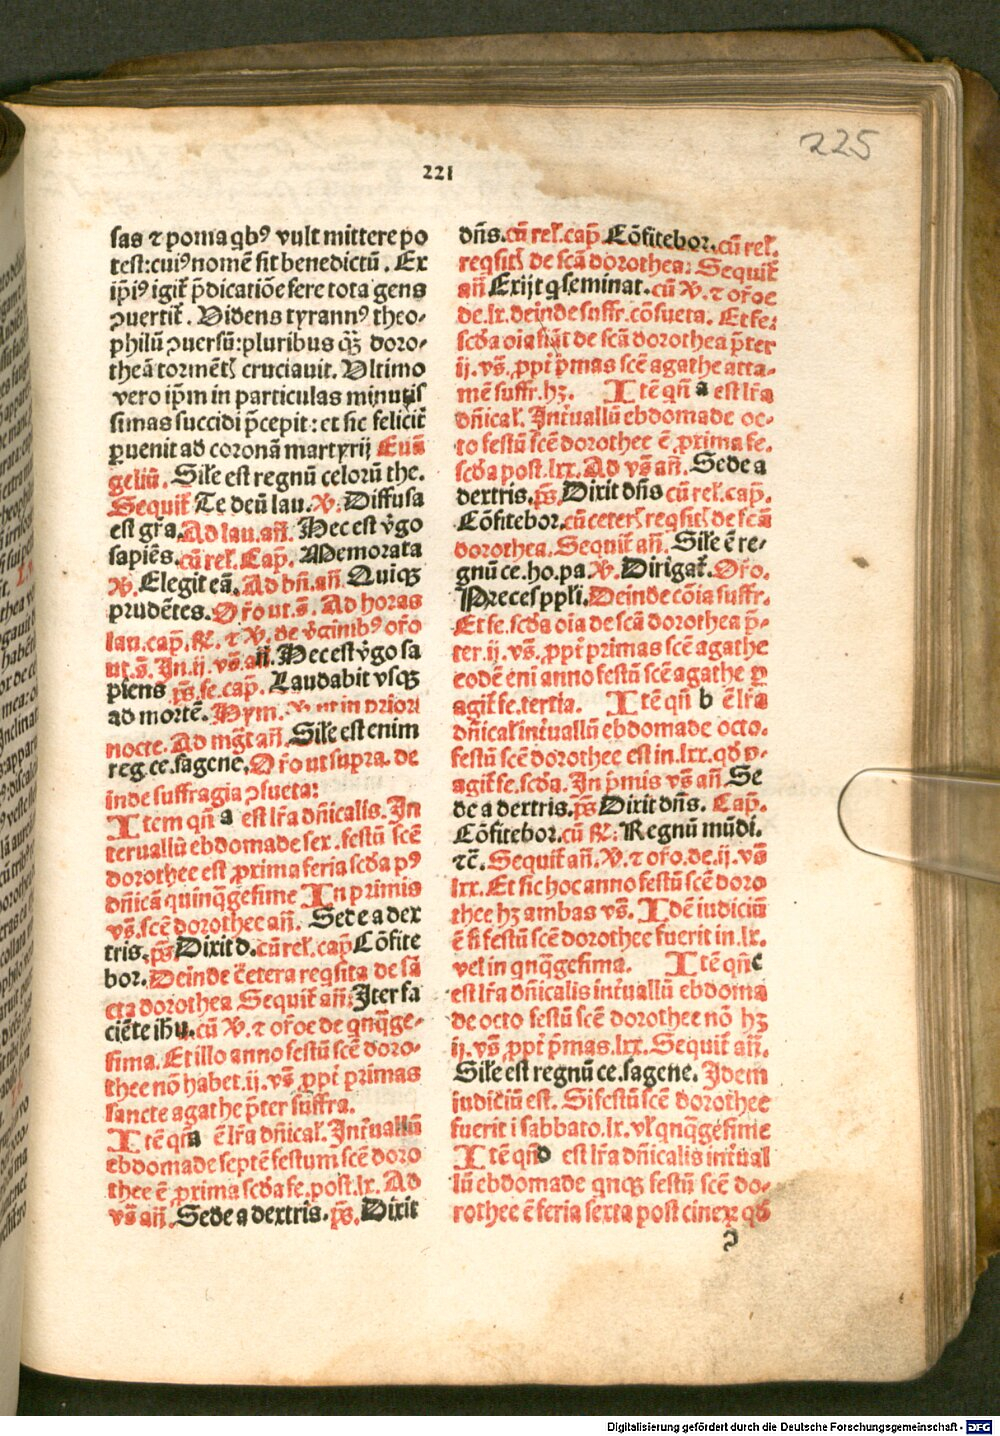 225
221
sas ⁊ poma qbꝰ vult mittere po
test: cuiꝰ nomē sit benedictū. Ex
ip̄iꝰ igit̄ p̄dicatiōe fere tota gens
ↄuertit̄. Videns tyrannꝰ theo-
philū ↄuersū: pluribus qꝫ doro-
theā tormēt cruciauit. Vltimo
vero ip̄m in particulas minutis
simas succidi p̄cepit: et sic felicit̄
ꝑuenit ad coronā martyrij Euā
geliū. Sil̄e est regnū celorū the.
Sequit̄ Te deū lau. ℣. Diffusa
est gr̄a. Ad lau. añ. Hec est v̄go
sapiēs. cū rel̄. Cap̄. Memorata
℣. Elegit eā. Ad bñ. añ. Quinqꝫ
prudētes. Or̄o ut. s̄. Ad horas
lau. cap̄. ℟. ⁊ ℣. de v̄ginibꝰ or̄o
ut. s̄. In. ij. vs̄. añ. Hec est v̄go sa
piens p̄s. fe. cap̄. Laudabit vsqꝫ
ad mortē. Hym. ℣ ut in priori
nocte. Ad mḡt añ. Sil̄e est enim
reg. ce. sagene. Or̄o ut supra. de
inde suffragia ↄsueta:
Item qñ a est lr̄a dñicalis. In
teruallū ebdomade sex. festū scē
dorothee est ꝓxima feria scd̄a pꝰ
dñicā quinqᷓgesime In primis
vs̄. scē dorothee añ. Sede a dex
tris. p̄s. Dixit d. cū rel. cap̄ Cōfite
bor. Deinde cetera reqsita de sā
cta dorothea Sequit̄ añ: Iter fa
ciēte ih̄u. cū ℣. ⁊ or̄oe de qnqᷓge-
sima. Et illo anno festū scē doro-
thee nō habet. ij. vs̄ ꝓpt̄ primas
sancte agathe p̄ter suffra.
Itē qñ a ē lr̄a dñical̄. Int̄uallū
ebdomade septē festum scē doro
thee ē ꝓxima scd̄a fe. post. lx. Ad
vs̄ añ. Sede a dextris. p̄s. Dixit
dñs. cū rel̄. cap̄ Cōfitebor. cū rel̄.
reqsit de scā dorothea: Sequit̄
añ Exijt q seminat. cū ℣. ⁊ or̄oe
de. lx. deinde suffr. cōsueta. Et fe:
scd̄a oīa fiāt de scā dorothea p̄ter
ij. vs̄. ꝓpt̄ p̄mas scē agathe atta-
mē suffr. hꝫ. Itē qñ a est lr̄a
dñical̄. Int̄uallū ebdomade oc-
to festū scē dorothee ē ꝓxima fe.
scd̄a post. lxx. Ad vs̄ añ. Sede a
dextris. p̄s. Dixit dñs cū rel̄. cap̄.
Cōfitebor. cū ceter reqsit de scā
dorothea. Sequit̄ añ. Sil̄e ē re-
gnū ce. ho. pa. ℣. Dirigat̄. Or̄o.
Preces ppl̄i. Deinde cōia suffr.
Et fe. scd̄a oīa de scā dorothea p̄-
ter. ij. vs̄. ꝓpt̄ primas scē agathe
eodē eni anno festū scē agathe ꝑ
agit̄ fe. tertia. Itē qñ b ē lr̄a
dñical̄ int̄uallū ebdomade octo.
festū scē dorothee est in. lxx. qd̄ ꝑ-
agit̄ fe. scd̄a. In p̄mis vs̄ añ. Se
de a dextris. p̄s Dixit dñs. Cap̄.
Cōfitebor. cū ℟: Regnū mūdi.
⁊c̄. Sequit̄ añ. ℣. ⁊ or̄o. de. ij. vs̄
lxx. Et sic hoc anno festū scē doro
thee hꝫ ambas vs̄. Idē iudiciū
ē si festū scē dorothee fuerit in. lx.
vel in qnqᷓgesima. Itē qñ c
est lr̄a dñicalis int̄uallū ebdoma
de octo festū scē dorothee nō hꝫ
ij. vs̄ ꝓpt̄ p̄mas. lxx. Sequit̄ añ.
Sil̄e est regnū ce. sagene. Idem
iudiciū est. Si festū scē dorothee
fuerit ī sabbato. lx. vl̄ qnqᷓgesime
Itē qñ d est lr̄a dñicalis int̄ual
lū ebdomade qnqꝫ festū scē do-
rothee ē feria sexta post cineꝝ qd̄
Digitalisierung gefördert durch die Deutsche Forschungsgemeinschaft - DFG